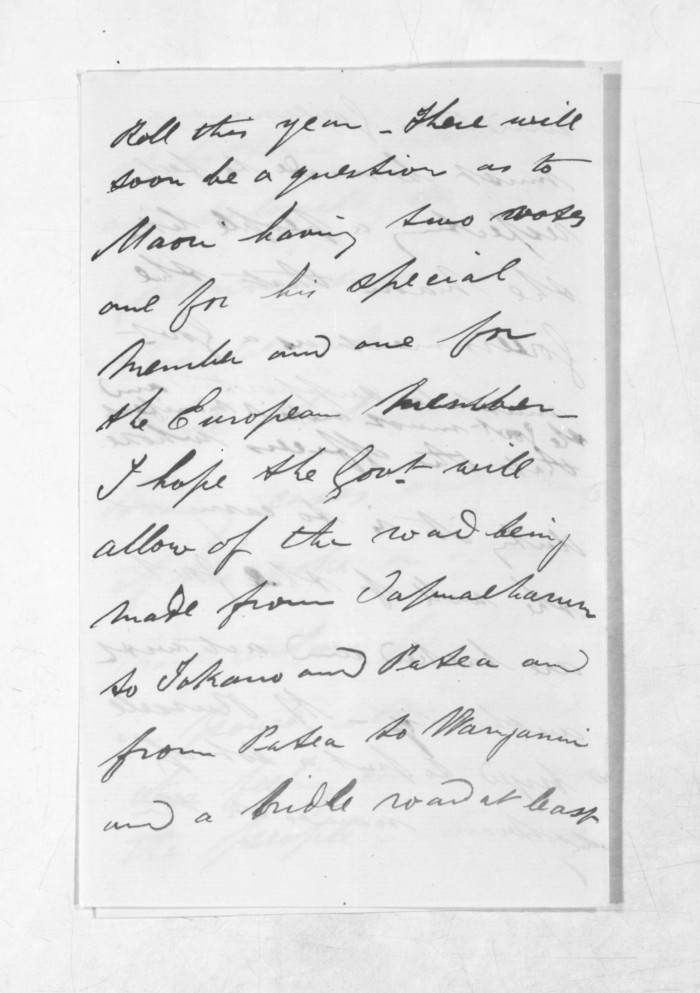 Roll this year - There will
soon be a question as to
Maori having two votes
one for his special
member and one for
the European member -
I hope the Govt will
allow of the road being
made from Tapuaeharuru
to Tokano and Patea and
from Patea to Wanganui
and a bridle road at least